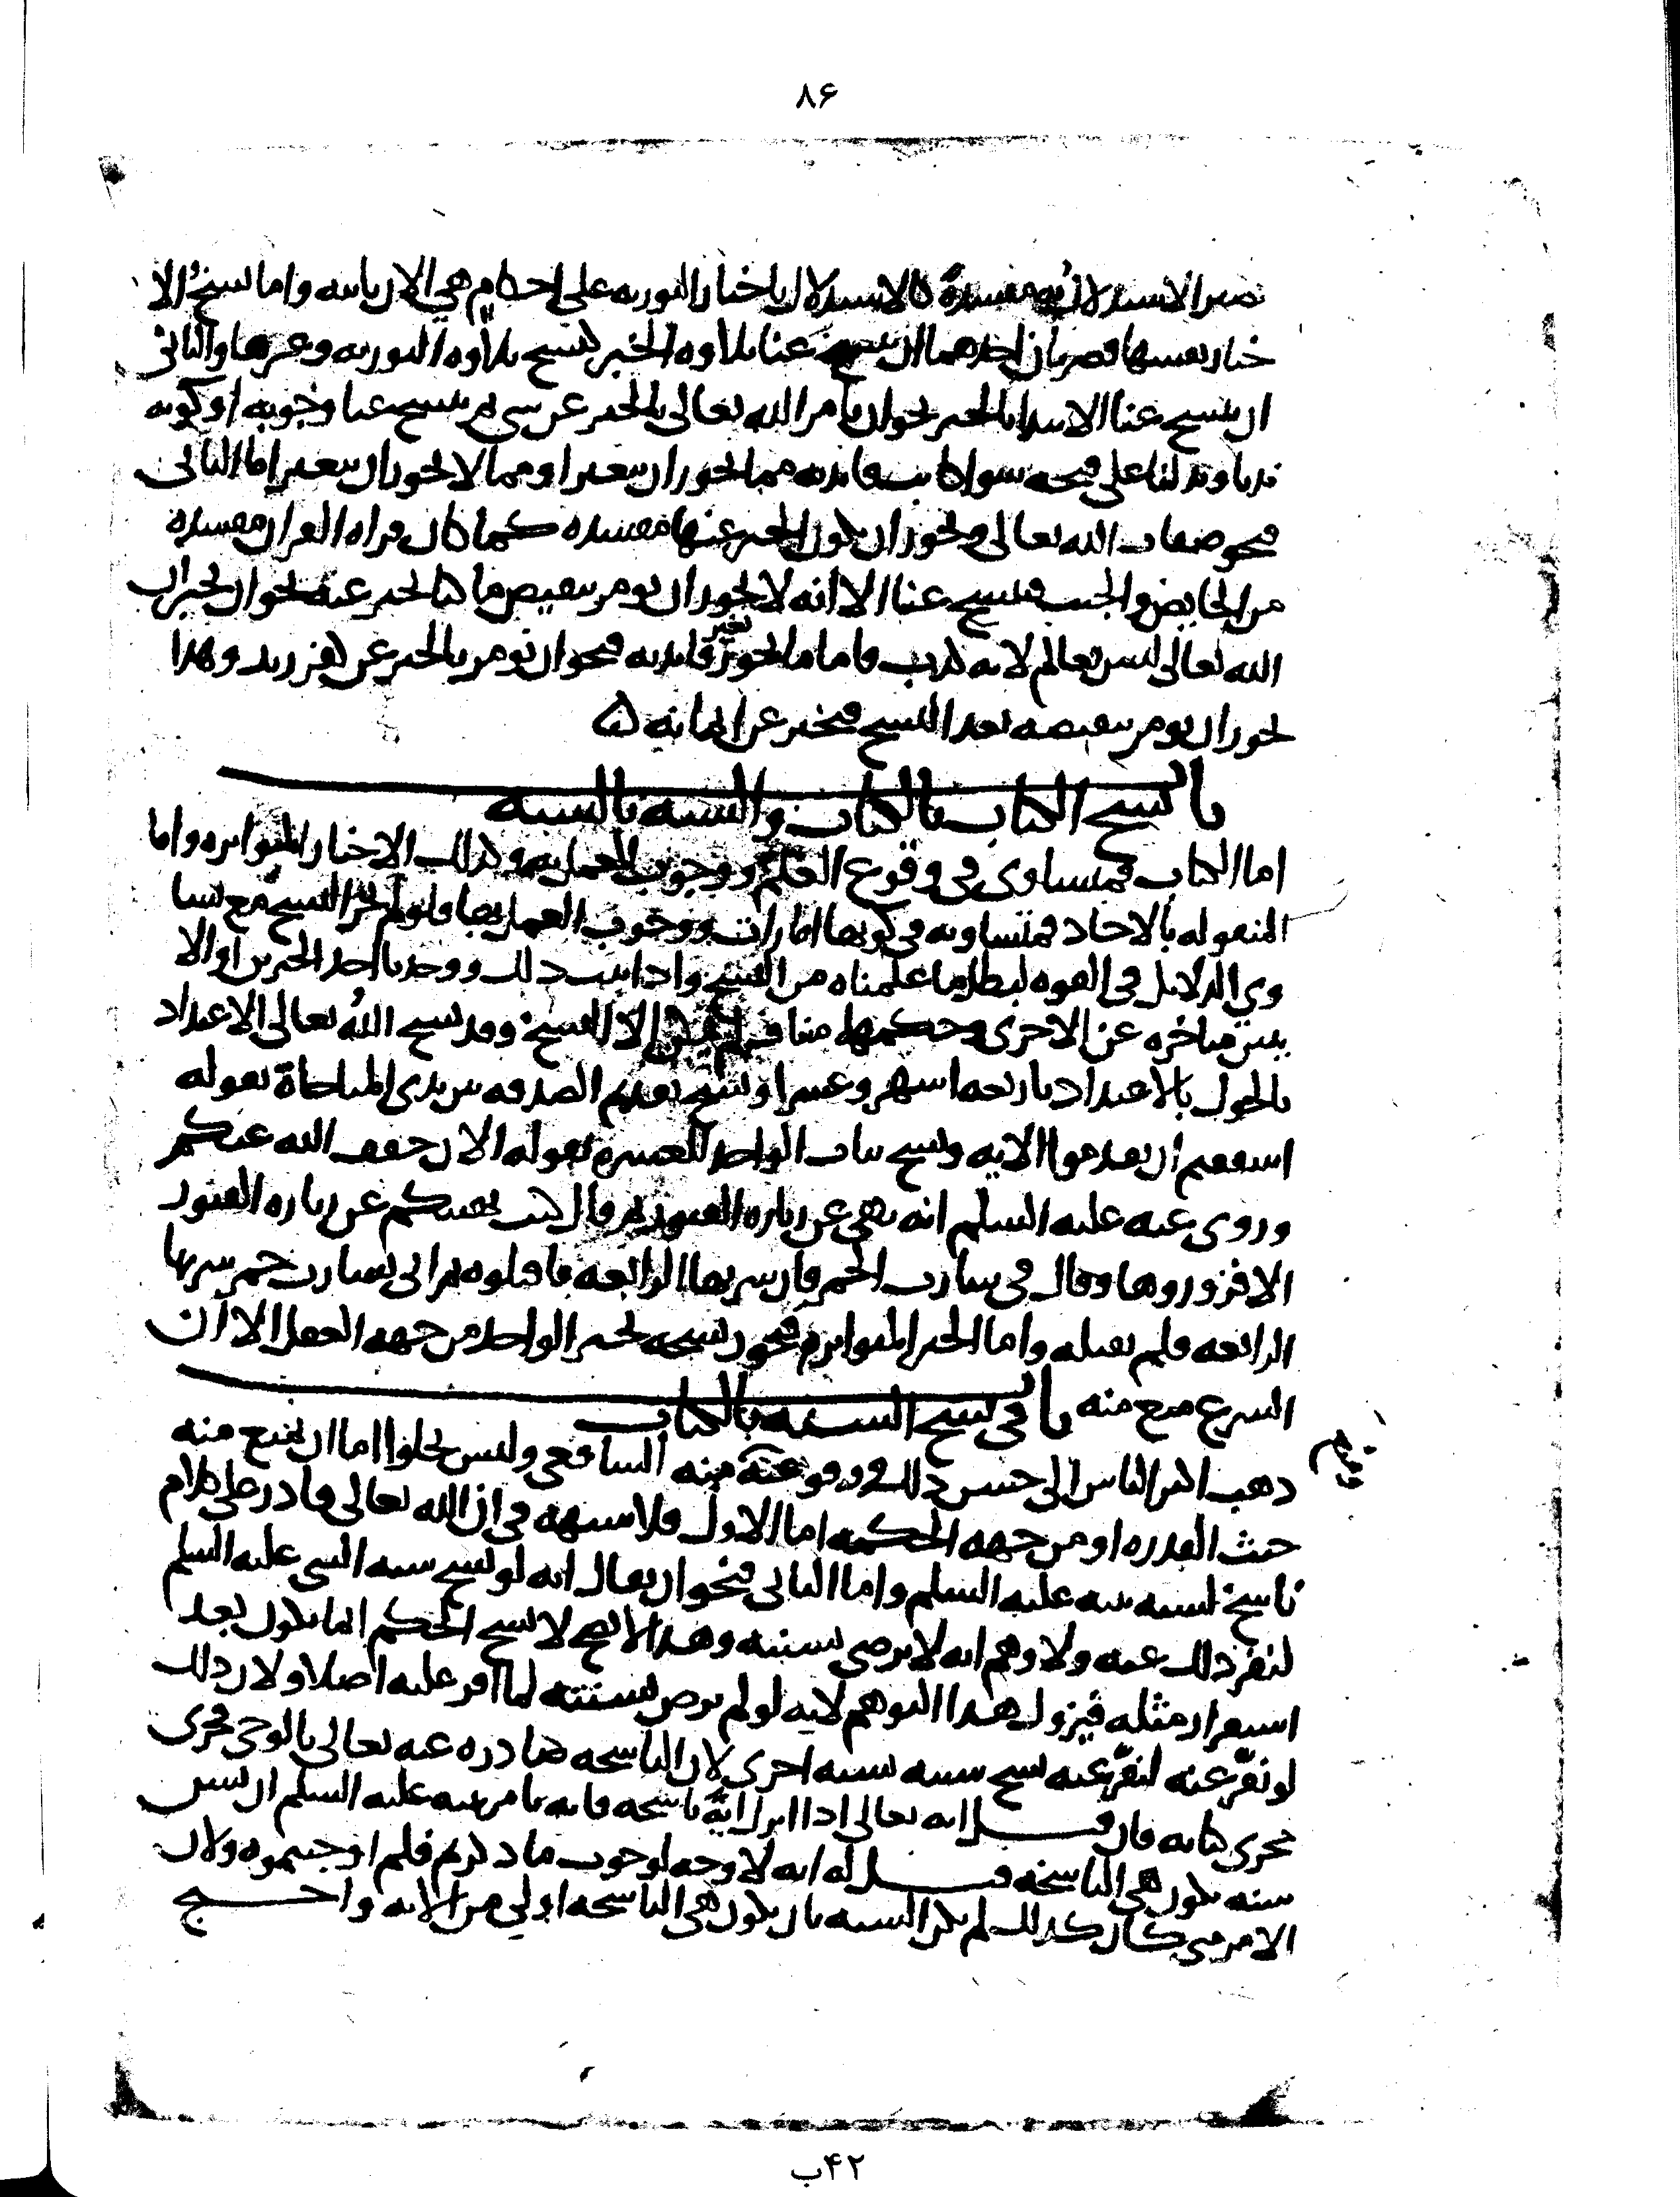 ٨۶
تصير الاستدلال به مفسدة كالاستدلال باخبار التورية على احكام هي الان ثابته واما نسخ الا
خبار نفسها فضربان احدهما ان ينسخ عنا تلاوة الخبر كنسخ تلاوة التورية وغيرها والثاني
ان ينسخ عنا الابتدا بالخبر نحو ان يأمر الله تعالى بالخبر عن شي ثم ينسخ عنا وجوبه او كونه
ندبا ويدلنا على قبحه سوا كانت فائدته مما يجوز ان يتغير او مما لا يجوز ان يتغير اما الثاني
فنحو صفات الله تعالى ويجوز ان يكون الخبر عنها مفسده كما كان قراة القران مفسده
من الحايض والجنب فينسخ عنا الا انه لا يجوز ان نومر بنقيض ما كنا نخبر عنه نحو ان نخبر ان
الله تعالى ليس بعالم لانه كذب فاما ما يجوز تغير فائدته فنحو ان نومر بالخبر عن كفر زيد وهذا
يجوز ان نومر بنقيضه بعد النسخ فنخبر عن ايمانه
باب نسخ الكتاب بالكتاب والسنه بالسنه
اما الكتاب فمتساوي في وقوع العلم ووجوب العمل به وكذلك الاخبار المتواتره واما
المنقوله بالاحاد فمتساويه في كونها امارات ووجوب العمل بها فلو لم يجز النسخ مع تسا
وي الدلايل في القوه لبطل ما علمناه من النسخ واذا ثبت ذلك ووجدنا احد الخبرين او الا
يتين متاخره عن الاخرى وحكمها مناف لم يكن الا النسخ وقد نسخ الله تعالى الاعتداد
بالحول بالاعتداد باربعه اشهر وعشرا ونسخ تقديم الصدقه بين يدي المناجاة بقوله
اشفقتم ان تقدموا الايه ونسخ ثبات الواحد للعشره بقوله الان خفف الله عنكم
وروي عنه عليه السلم انه نهى عن زياره القبور ثم قال كنت نهيتكم عن زياره القبور
الا فزوروها وقال في شارب الخمر فان شربها الرابعه فاقتلوه ثم اتي بشارب خمر شربها
الرابعه فلم يقتله واما الخبر المتواتر فيجوز نسخه بخبر الواحد من جهه العقل الا ان
الشرع منع منه باب في نسخ السنه بالكتاب
ذهب اكثر الناس الى حسن ذلك ووقوعه ومنع منه الشافعي وليس يخلوا اما ان يمنع منه
حيث القدره او من جهه الحكمه اما الاول فلا شبهه في ان الله تعالى قادر على كلام
ناسخ لسنه نبيه عليه السلم واما الثاني فنحو ان يقال انه لو نسخ سنه النبي عليه السلم
لنفر ذلك عنه ولاوهم انه لا يرضى بسنته وهذا لا يصح لان نسخ الحكم انما يكون بعد
استقرار مثله فيزول هذا التوهم لانه لو لم يرض بسنته لما اقر عليه اصلا ولان ذلك
لو نفر عنه لنفر عنه نسخ سنته بسنه اخرى لان الناسخه صادره عنه تعالى بالوحي فجرى
مجرى كتابه فان قيل انه تعالى اذا انزل اية ناسخه فانه يامر نبيه عليه السلم ان يسن
سنه تكون هي الناسخه قيل له انه لا وجه لوجوب ما ذكرتم فلم اوجبتموه ولان
الامر متى كان كذلك لم تكن السنه بان تكون هي الناسخه اولى من الايه واحتج
۴۲ب